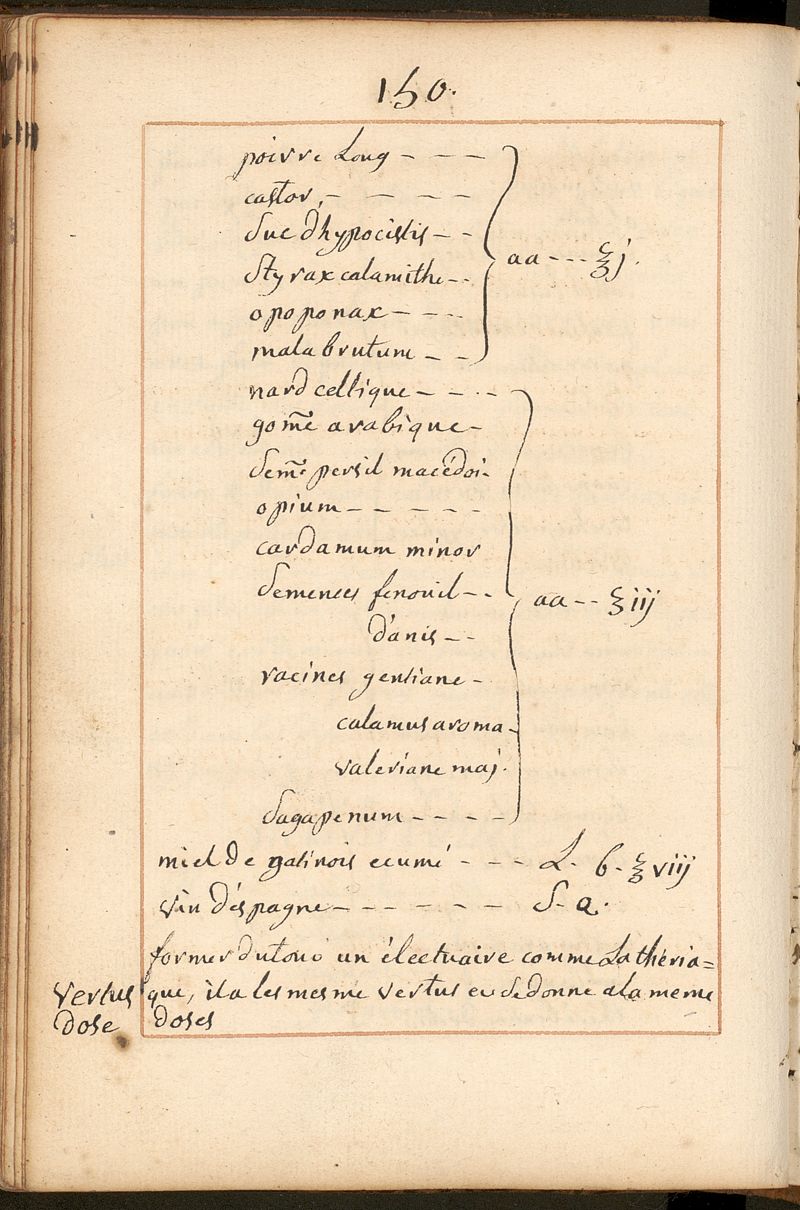 150.
poivre Long - - -
castor, - - - -
Suc dhypocistis - -
Styrax calamithe - -
opoponax - - - -
malabrutum - - -
aa - - - ℥j.
nard celtique - - - -
gom̃e arabique -
Sem͠e persil macédoi-
opium - - - - -
cardamum minor
Semences fenouil - -
d'anis - -
racines gentiane -
calamus aroma-
valeriane maj.
Sagapenum - - - -
aa - - ℥iij
miel de gatinois ecumé - - - L. 6. ℥viij
vin d'espagne - - - - - - S. a.
former du tout un électuaire comme La théria=
Vertus que, il a les mesme vertus et se donne a la meme
Dose doses